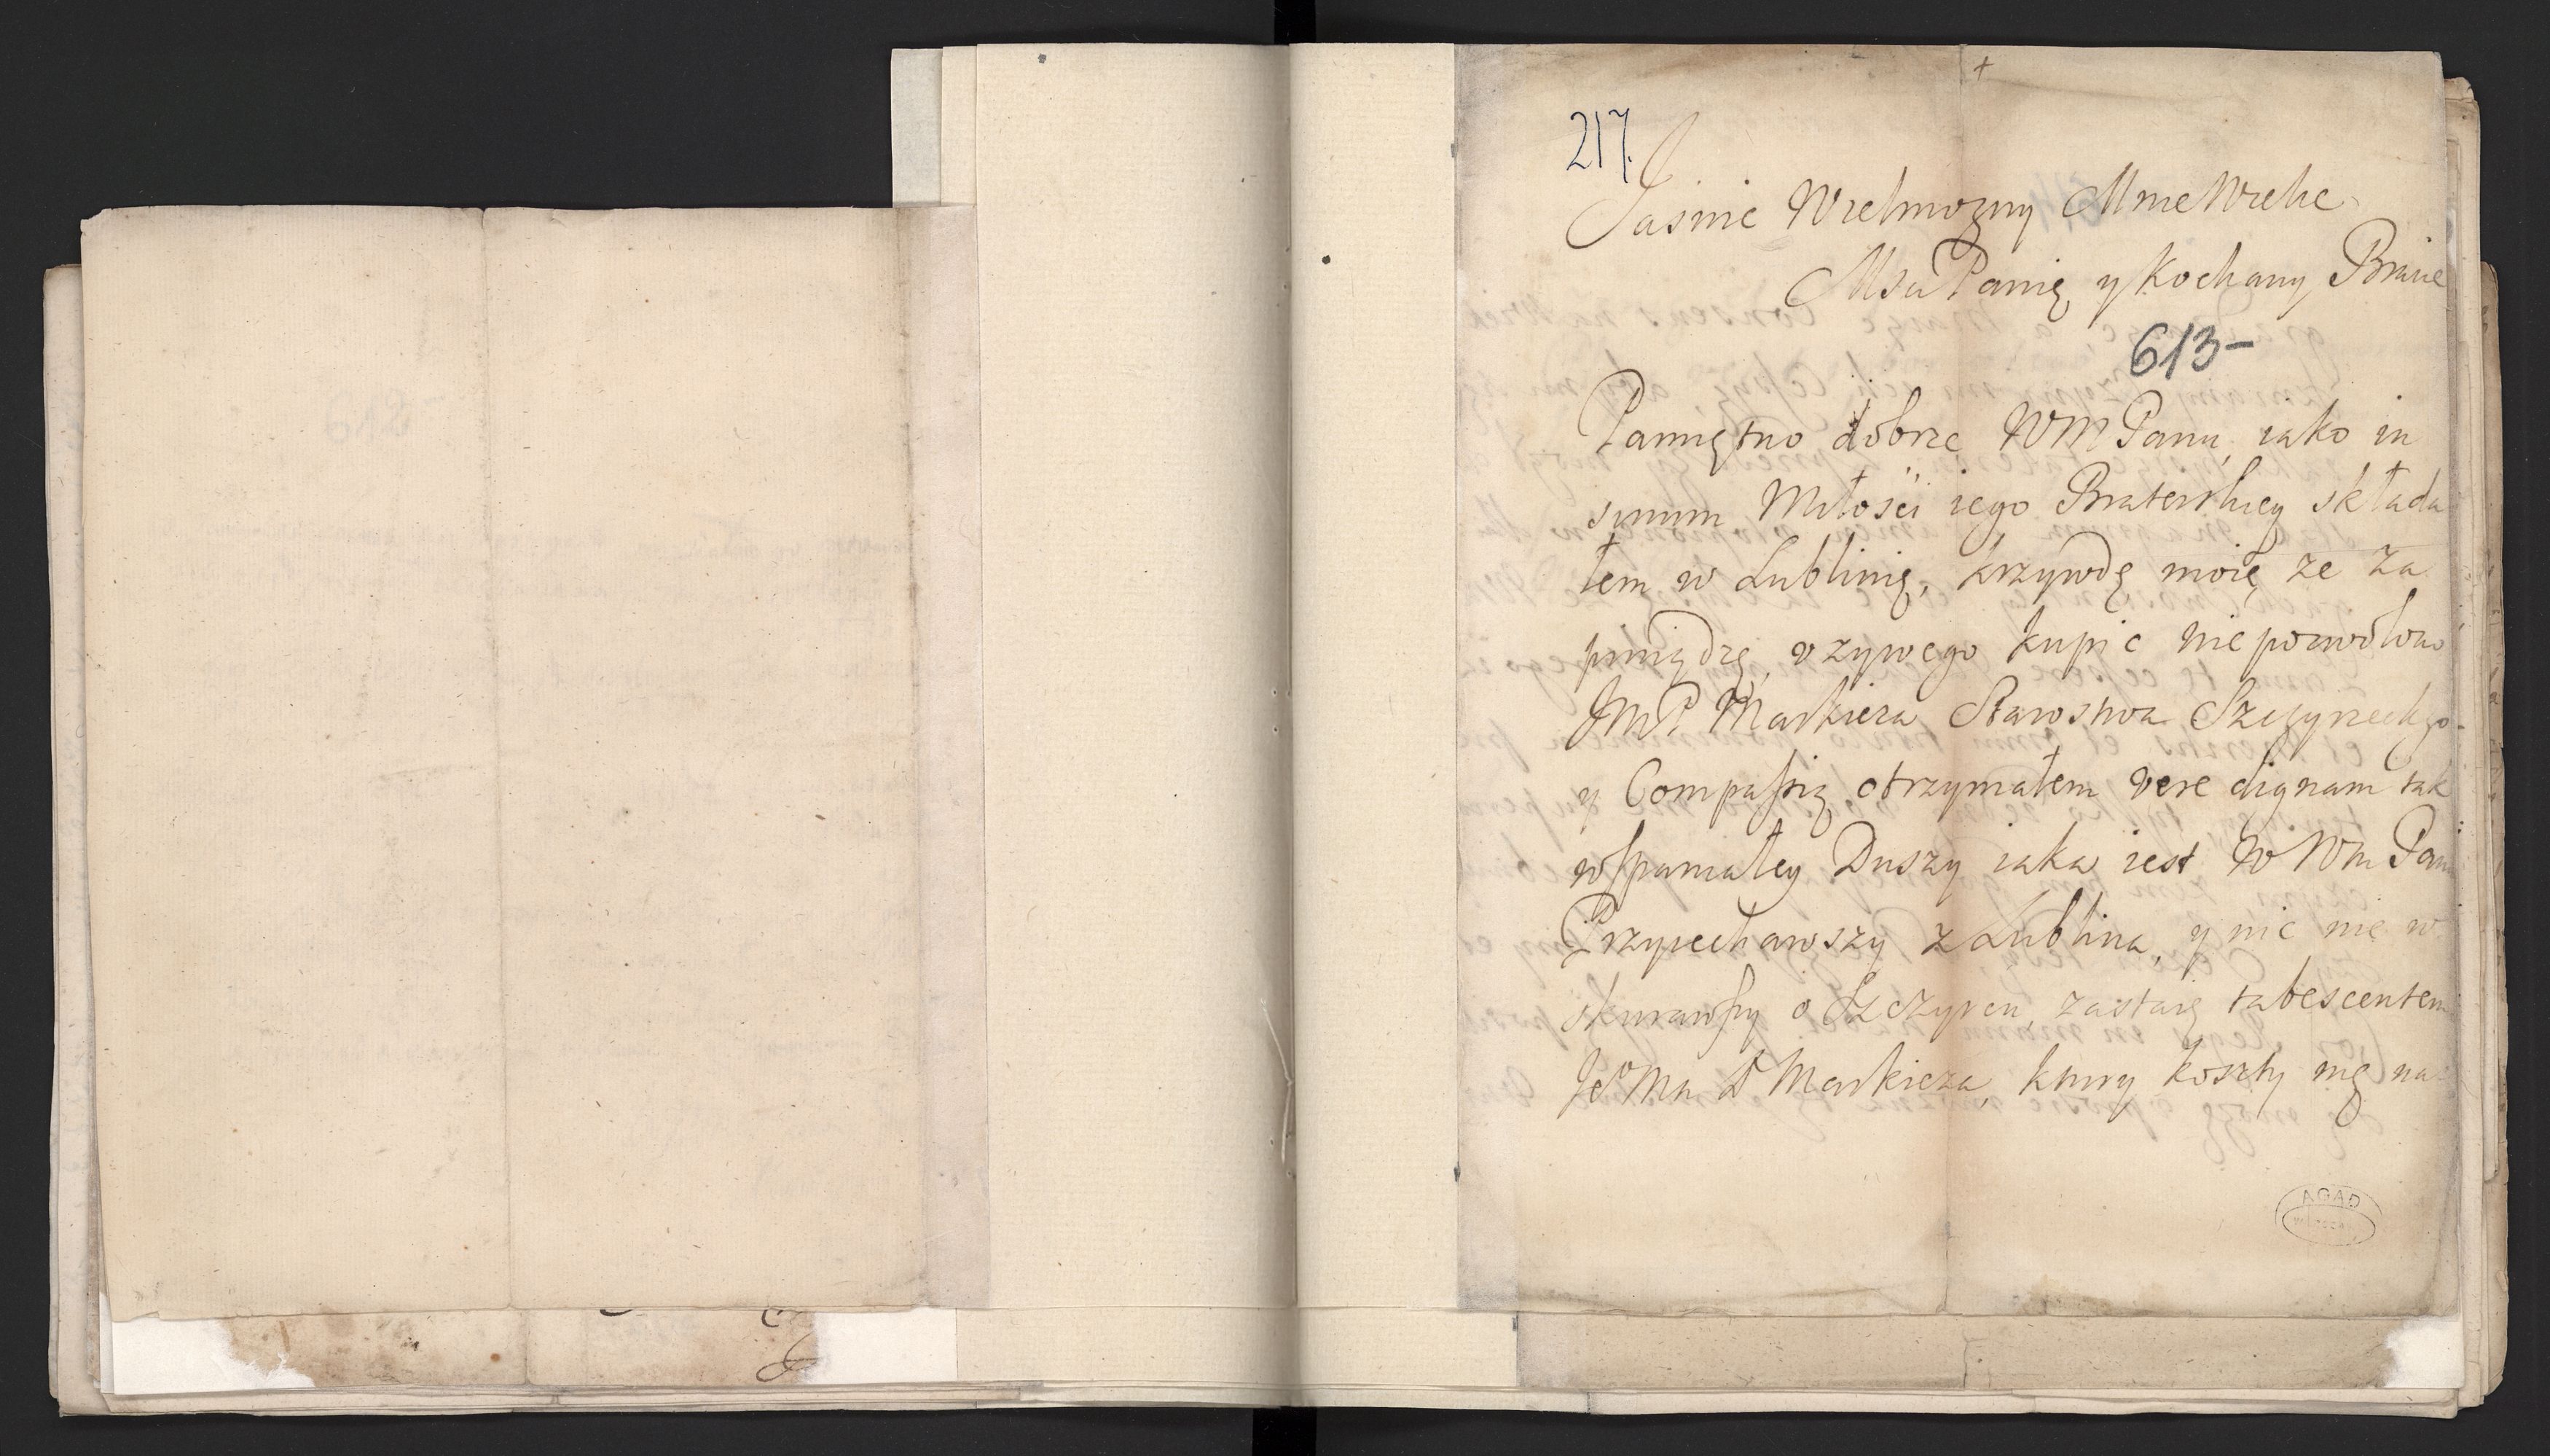 217.
+
Jasnie Wielmozny Mnie Wielce
Msci Panię y Kochany Bracie
613-
Pamiętno dobrze WM Panu, iako in
sinum Miłosci iego Braterskiey składa
łem w Lublinię, krzywdę moię ze za
piniądzę, v zywego kupic nie pozwolono
JMP Markieza Starostwa Szczyrzeckgo
y Compassią otrzymałem vere dignam tak
wspaniałey Duszy iaka iest W Wm Panu
Przyiechawszy z Lublina, y nic nie w
skurawszy o Szczyrcu, zastaię tabescentem
Je° Mci P Markieza, ktury koszty mę na
AGAD